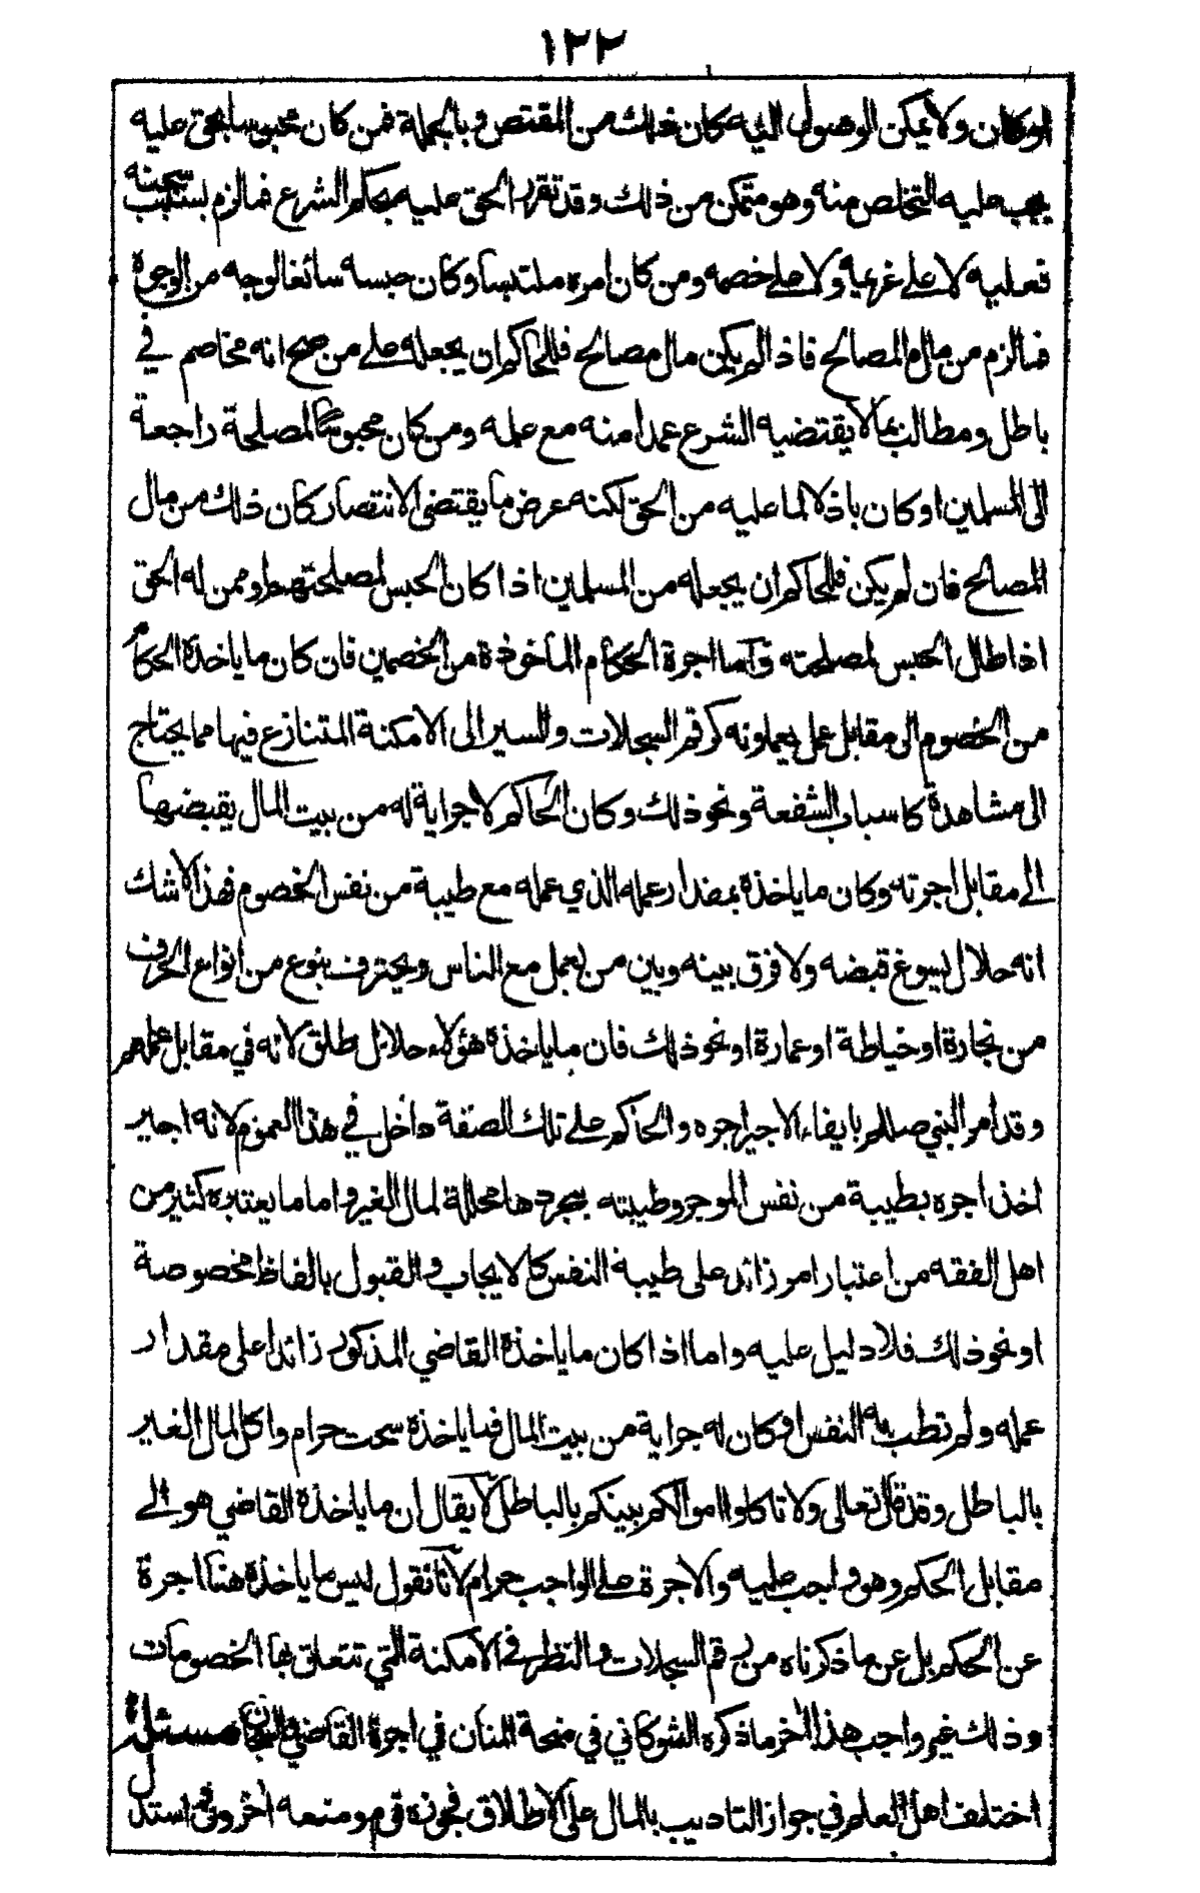 ١٢٢
او كان ولا يمكن الوصول اليه كان ذلك من المقتص وبالجملة فمن كان محبوسا بحق عليه
يجب عليه التخلص منه وهو متمكن من ذلك وقد تقرر الحق عليه بحكم الشرع فما لزم بسبب سجنه
فعليه لا على غريمه ولا على خصمه ومن كان امره ملتبسا وكان حبسه سائغا لوجه من الوجوه
فما لزم من مال المصالح فاذا لم يكن مال مصالح فللحاكم ان يجعله على من صح انه مخاصم في
باطل ومطالب بما لا يقتضيه الشرع عمدا منه مع علمه ومن كان محبوسا لمصلحة راجعة
الى المسلمين او كان باذلا لما عليه من الحق لكنه عرض ما يقتضى الانتصار كان ذلك من مال
المصالح فان لم يكن فللحاكم ان يجعله من المسلمين اذا كان الحبس لمصلحتهم او ممن له الحق
اذا طال الحبس لمصلحته واما اجرة الحكام الماخوذة من الخصمين فان كان ما ياخذه الحكام
من الخصوم الى مقابل عمل يعملونه كرقم السجلات والسير الى الامكنة المتنازع فيها مما يحتاج
الى مشاهدة كاسباب الشفعة ونحو ذلك وكان الحاكم لا جراية له من بيت المال يقبضها
الے مقابل اجرته وكان ما ياخذه بمقدار عمله الذي عمله مع طيبة من نفس الخصوم فهذا لاشك
انه حلال يسوغ قبضه ولا فرق بينه وبين من يعمل مع الناس ويحترف بنوع من انواع الحرف
من نجارة او خياطة او عمارة او نحو ذلك فان ما ياخذه هؤلاء حلال طلق لانه في مقابل عملهم
وقد امر النبي صللم بايفاء الاجير اجره والحاكم على تلك الصفة داخل في هذا العموم لانه اجير
اخذ اجره بطيبة من نفس الموجر وطيبته بمجردها محللة لمال الغير واما ما يعتبره كثير من
اهل الفقه من اعتبار امر زائد على طيبة النفس كالايجاب والقبول بالفاظ مخصوصة
او نحو ذلك فلا دليل عليه واما اذا كان ما ياخذه القاضي المذكور زائدا على مقدار
عمله ولم تطب به النفس او كان له جراية من بيت المال فما ياخذه سحت حرام واكل لمال الغير
بالباطل وقد قال تعالى ولا تاكلوا اموالكم بينكم بالباطل لا يقال ان ما ياخذه القاضي هو الے
مقابل الحكم وهو واجب عليه والاجرة على الواجب حرام لانا نقول ليس ما ياخذه هنا اجرة
عن الحكم بل عن ما ذكرناه من رقم السجلات والنظر في الامكنة التي تتعلق بها الخصومات
وذلك غير واجب هذا اخر ما ذكره الشوكاني في منحة المنان في اجرة القاضي والسجان مسئلة
اختلف اهل العلم في جواز التاديب بالمال على الاطلاق فجوزه قوم ومنعه اخرون وقد استدل